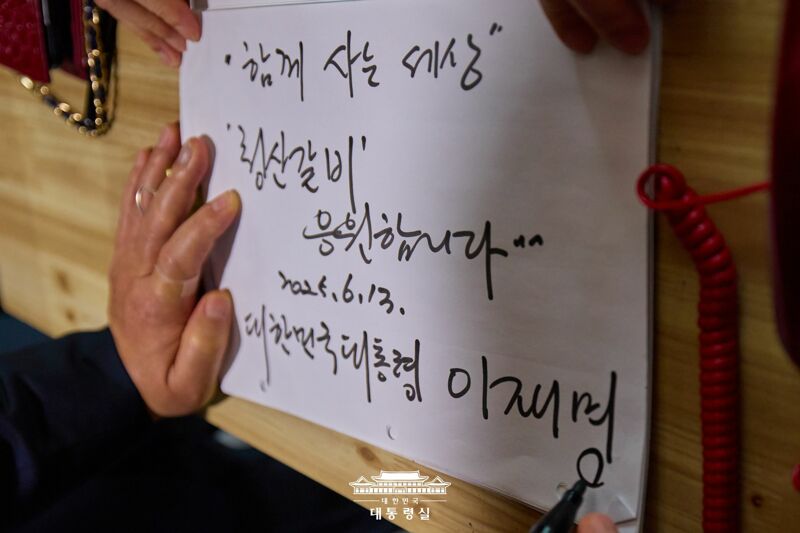 "함께 사는 세상"
'청산갈비'
응원합니다..""
2025.6.13.
대한민국대통령 이재명
대한민국
대통령실